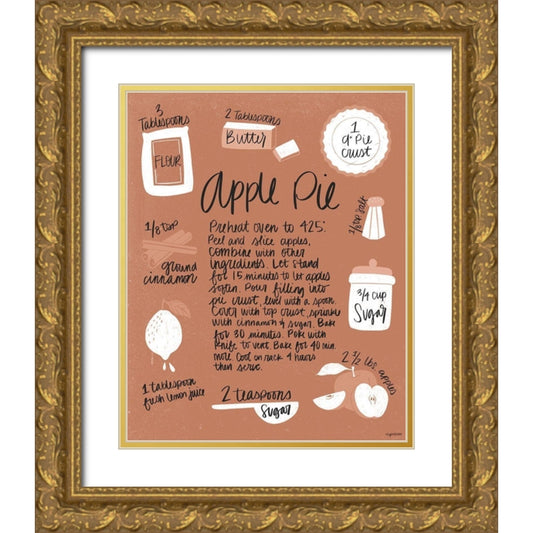 3
Tablespoons
FLOUR
2 Tablespoons
Butter
1
9" Pie
crust
apple Pie
1/8 tsp
ground
cinnamon
1/8 tsp salt
Preheat oven to 425°.
Peel and slice apples.
Combine with other
ingredients. Let stand
for 15 minutes to let apples
soften. Pour filling into
pie crust, level with a spoon.
Cover with top crust, sprinkle
with cinnamon & sugar. Bake
for 30 minutes. Poke with
knife to vent. Bake for 40 min.
more. Cool on rack 4 hours
then serve.
3/4 cup
Sugar
1 tablespoon
fresh lemon juice
2 teaspoons
Sugar
2 1/2 lbs apples